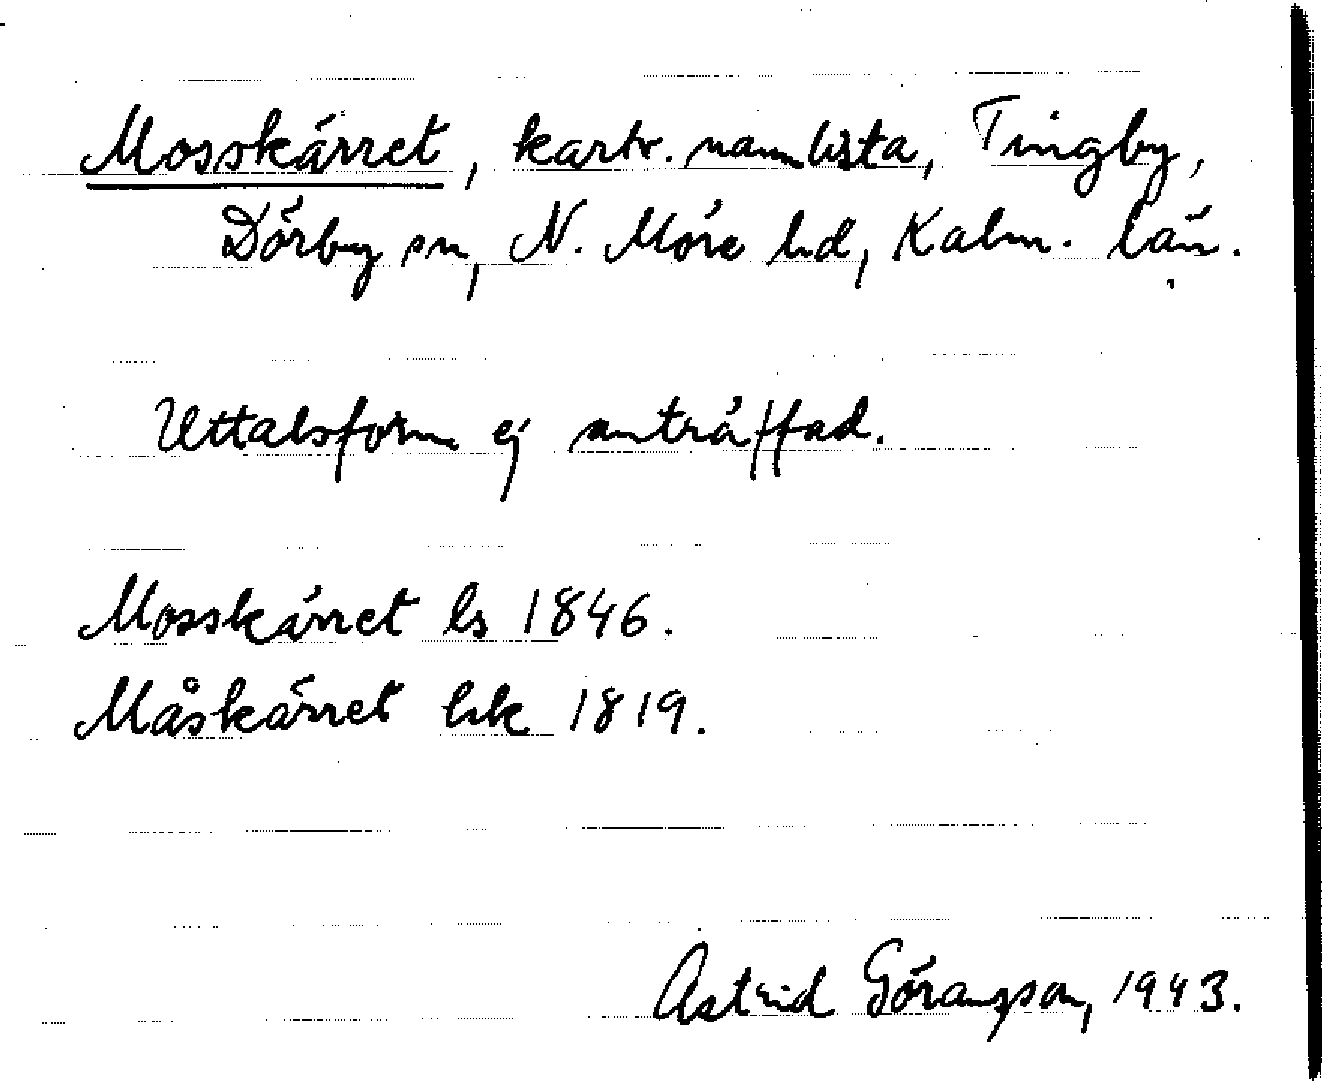 Mosskärret, kartv. namnlista, Tingby,
Dörby sn, N. Möre hd, Kalm. län.
Uttalsform ej anträffad.
Mosskärret ls 1846.
Måskärret hsk 1819.
Astrid Göransson, 1943.